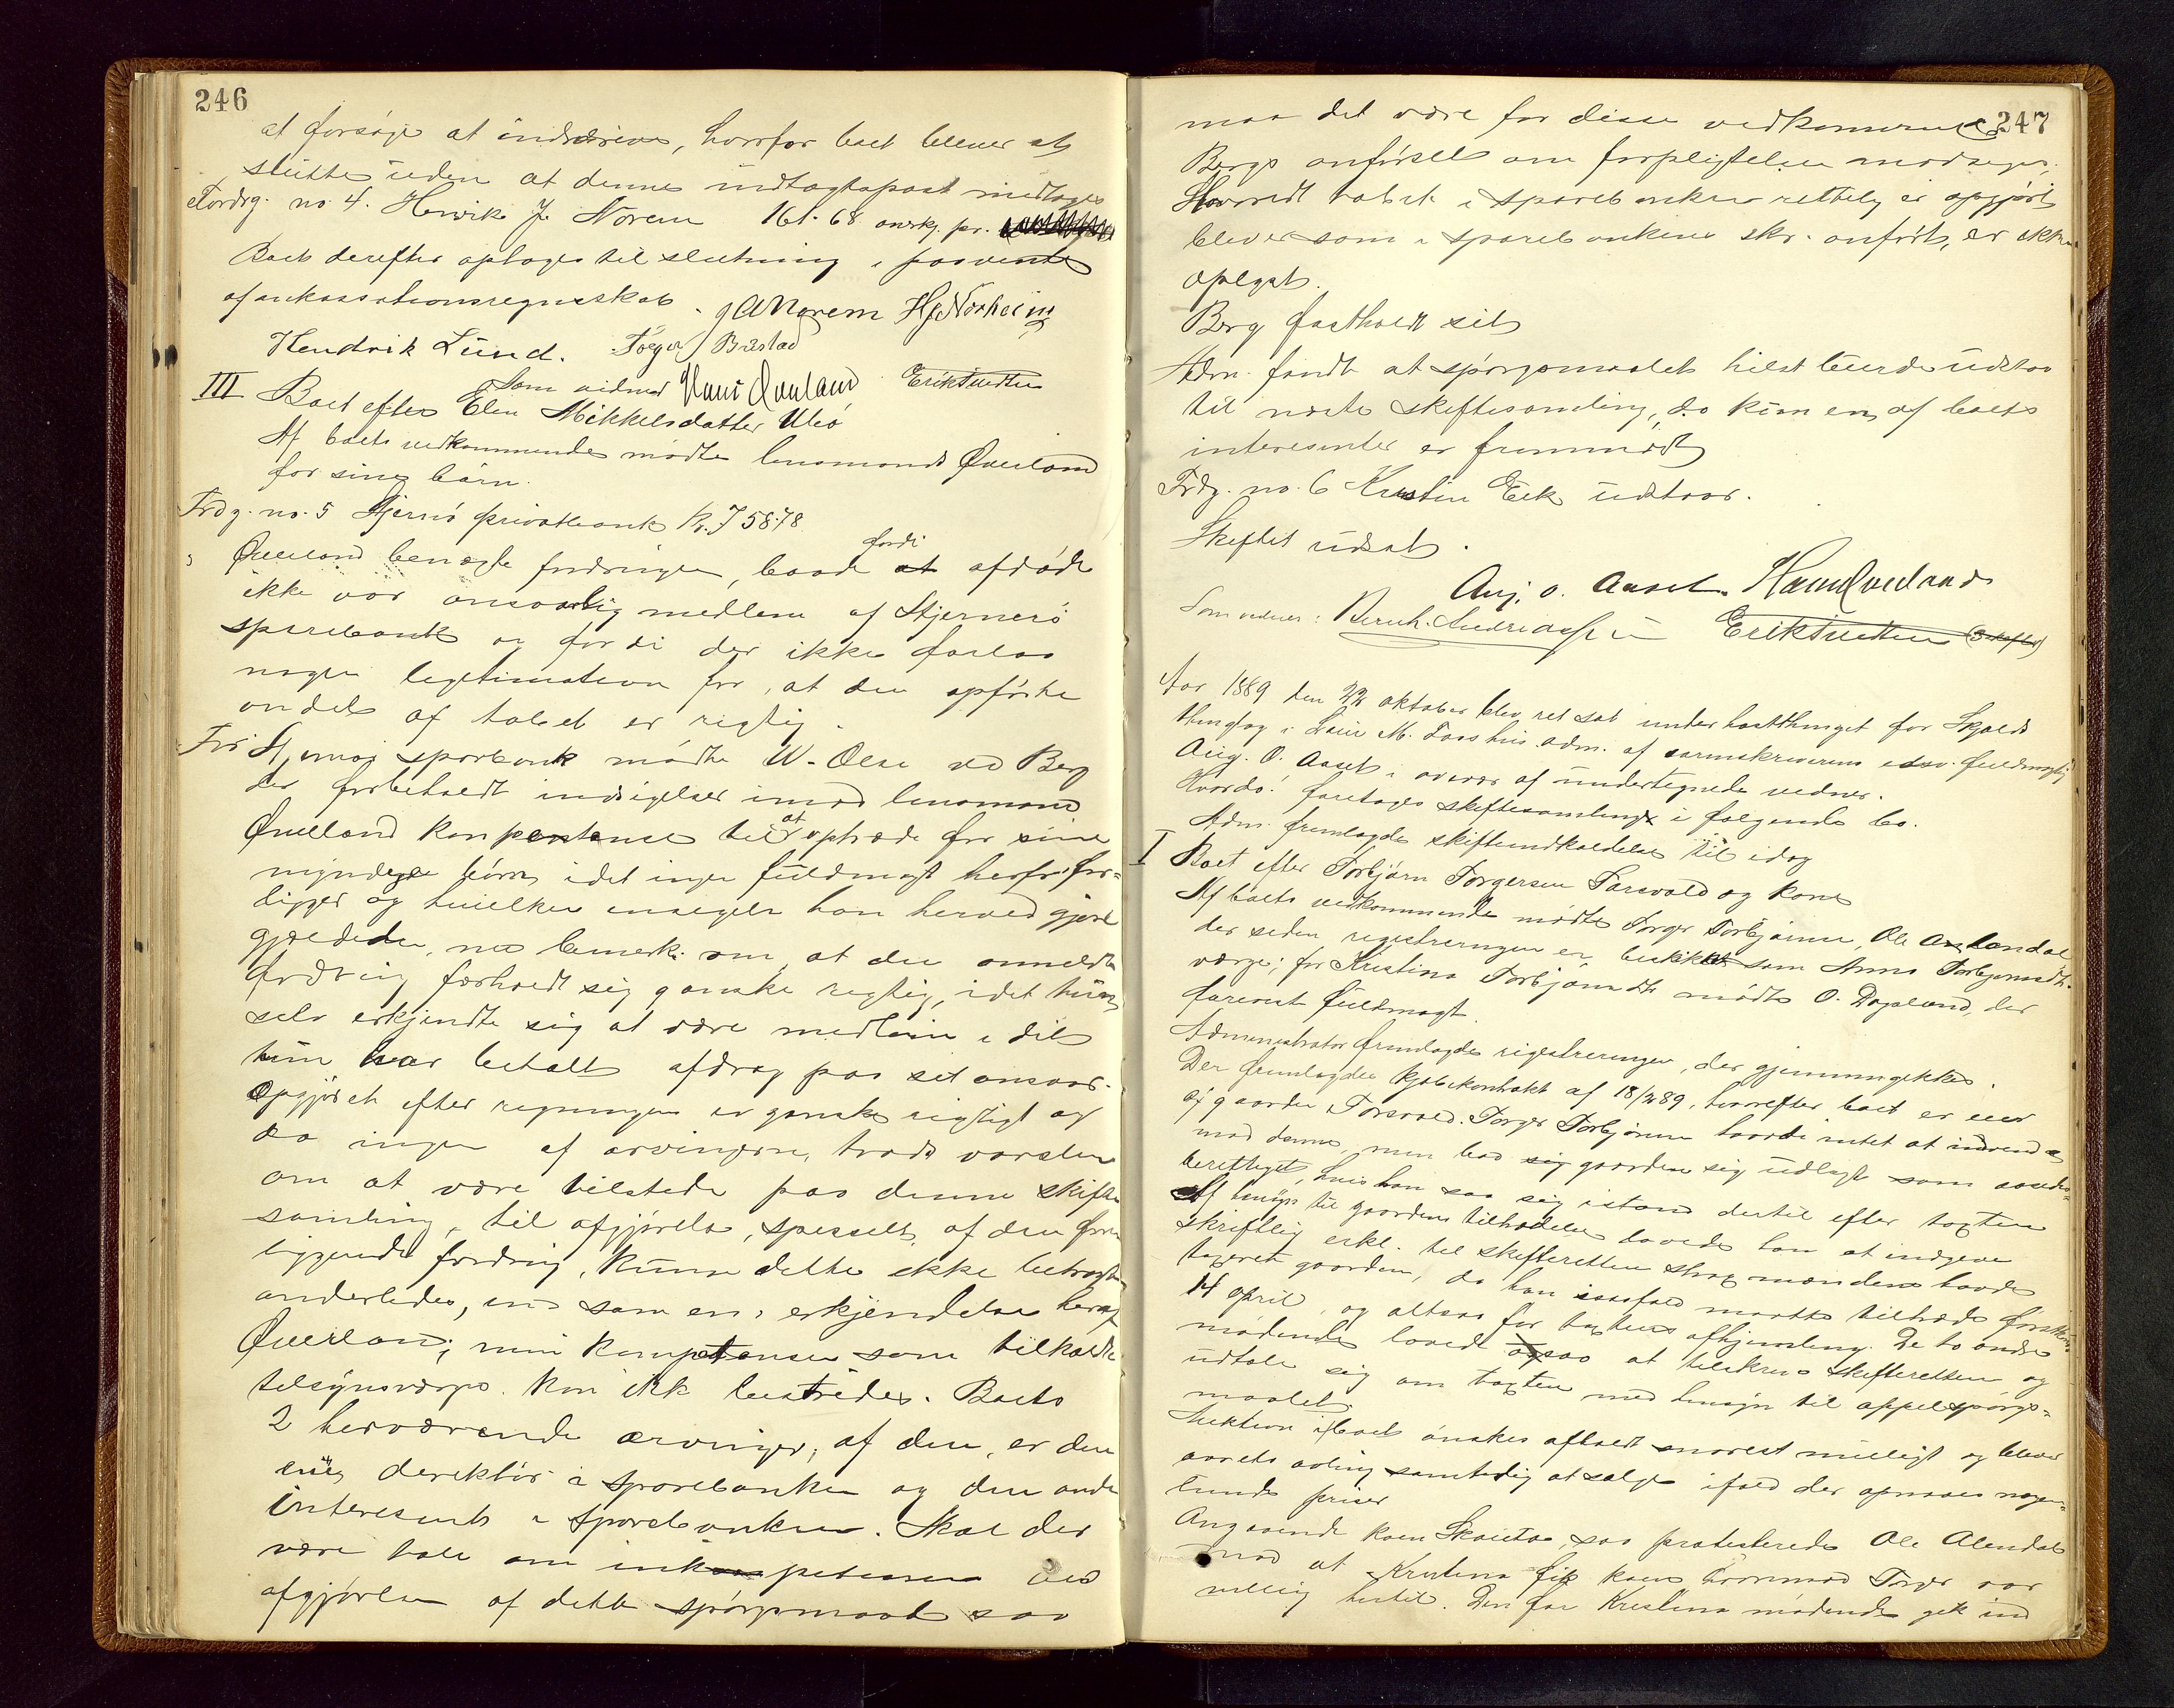 246
at forsøge at inddrive, hvorfor boet blever at
slutte uden at denne indtægtspost medtages
Fordrg. no. 4. Henrik J. Norem 161.68 anerkj. pr.
Boet derefter optages til slutning i paavente
af aukssationsregnskab. G A Norem H J Norheim
Hendrik Lund. Torger Brestad
Som vidner Hans Qveland Erik Tvedten
III Boet efter Elen Mikkelsdatter Ubø
Af boets vedkommende mødte lensmand Qveland
for sine børn.
Frdg. no. 5 Stjernø privatbank Kr. 758.78
Qveland benægte fordringen, baade fordi at afdøde
ikke var ansvarlig medlem af Stjernerø
sparebank og fordi der ikke forlaa
nogen legetimation for, at den opførte
andels af tabet er rigtig.
For Stjernøi sparbank mødte W. Olsen ved Berg
der forbeholdt indsigelser imod lensmand
Qveland kompentanse til at optræde for sine
myndige børn, idet ingen fuldmagt herfor fore-
ligger og hvilken insegelse han herved gjør
gjældende, no bemerk. om, at den anmeldte
fordring forholdt sig ganske rigtig, idet hun
selv erkjendte sig at være medlem i det
hun har betalt afdrag paa sit ansvar.
Opgjøret efter regningen er ganske rigtigt og
da ingen af arvingerne, trods varslen
om at være tilstede paa denne skifte
samling, til afgjørelse, spesselt af den fore
liggende fordring, kunne dette ikke betragtes
anderledes, end som en erkjendelse heraf
Qveland; min kompetanse som tilkaldte
telsynsværge kan ikk bestrides. Boets
2 herværende arvinger, af dem, er den
ene derektør i sparebanken og den anden
interesent i sparebanken. Skal der
være tale om inkompetense ved
afgjørelsen af dette spørgsmaal saa
247
maa det være for disse vedkommende
Bergs anførsel om forpligtelsen modsiges;
Hvorvidt tabet i sparebanken rettelig er opgjørt
blever som i sparebankens skr. anført, er ikke
oplyst.
Berg fastholdt sit
Adm. fandt at spørgsmaalet helst burde udstaa
til næste skiftesamling, da kun en af boets
interesenter er fremmødt
Frdg. no. 6 Kristin Eik udstaar.
Skiftet udsat.
Aug. O. Aaset. Hans Qveland
Som vidner: Bernh. Andreassen Erik Tvedten
Aar 1889 den 22 oktober blev ret sat under høstthinget for Skjolds
thinglag i Laur M. Laas hus adm. af sorenskriverens edsv. fuldmægtig
Aug. O. Aaset i overvær af undertegnede vedner.
Hvorda: foretages skiftesamlinger i følgende bo.
Adm. fremlagde skifteindkaldelse til idag
I Boet efter Torbjørn Torgersen Forsvold og kone
Af boets vedkommende mødte Torger Torbjørnsen, Ole Aalendal
der siden registreringen er beskikket som Anna Torbjørnsdt.
værge; for Kristina Torbjørnsdt. mødte O. Dagsland, der
forevist fuldmagt.
Administrator fremlagde registreringen, der gjennemgikkes.
Der fremlagdes kjøbekontrakt af 18/2 89, hvorefter boet er eier
af gaarden Forsvold. Torger Torbjørnsen havde intet at indvende
mod denne, men bad sig gaarden sig udlagt som aasædes-
berettiget, hvis han saa sig istand dertil efter taxten
Af hensyn til gaardens tiltrædelse lovede han at indgive
skriftlig erkl. til skifteretten strax mændene havde
taxeret gaarden, da han isaafald maatte tiltræde førstkom.
14 april, og altsaa før taxtens afhjemling. De to andre
mødende lovede ogsaa at tilskrive skifteretten og
udtale sig om taxten med hensyn til appelspørgs-
maalet.
Auktion i boet ønskes afholdt snarest muligt og blever
aarets avling samtidig at sælge ifald der opnaaes nogen-
lunde priser
Angaaende koen Skauta, saa protesterede Ole Alendal
mod at Kristina fik koen hvorimod Torger var
villig hertil. Den for Kristina mødende gik ind